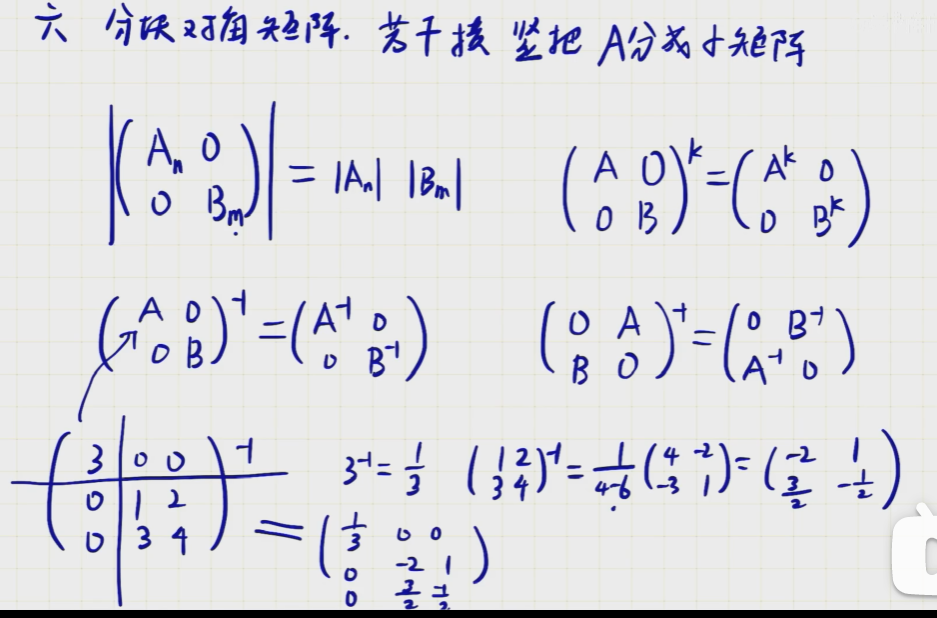 六 分块对角矩阵. 若干横竖把A分成小矩阵
|(A_n 0; 0 B_m)| = |A_n| |B_m|
(A 0; 0 B)^k = (A^k 0; 0 B^k)
(A 0; 0 B)^-1 = (A^-1 0; 0 B^-1)
(0 A; B 0)^-1 = (0 B^-1; A^-1 0)
(3 0 0; 0 1 2; 0 3 4)^-1 = (1/3 0 0; 0 -2 1; 0 3/2 -1/2)
3^-1 = 1/3
(1 2; 3 4)^-1 = 1/(4-6) (4 -2; -3 1) = (-2 1; 3/2 -1/2)